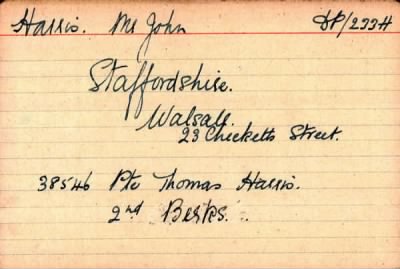 Harris. Mr John DP/2334
Staffordshire.
Walsall.
23 Checketts Street.
38546 Pte Thomas Harris.
2nd Berks.